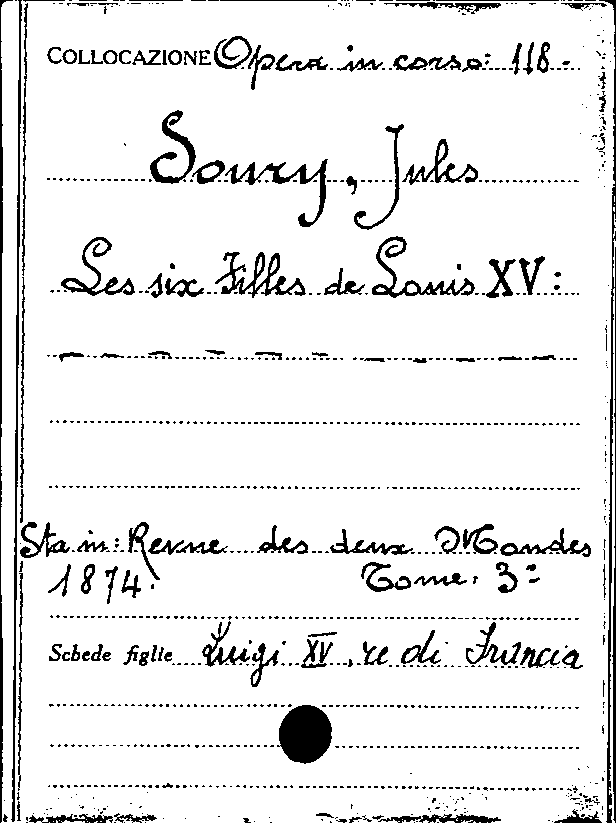 COLLOCAZIONE Opera in corso: 118.
Soury, Jules
Les six Filles de Louis XV:
Sta in: Revue des deux Mondes
1874. Tome: 3º
Schede figlie Luigi XV, re di Francia